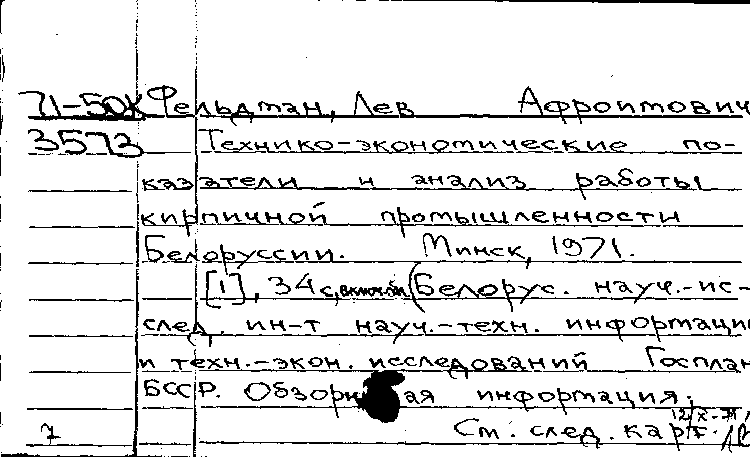 71-50К Фельдман, Лев Афроимович
3573 Технико-экономические по-
казатели и анализ работы
кирпичной промышленности
Белоруссии. Минск, 1971.
[1], 34 с, включ. (Белорус. науч.-ис-
след. ин-т науч.-техн. информации
и техн.-экон. исследований Госплан
БССР. Обзорная информация;
12/X-71
7 См. след. карт.